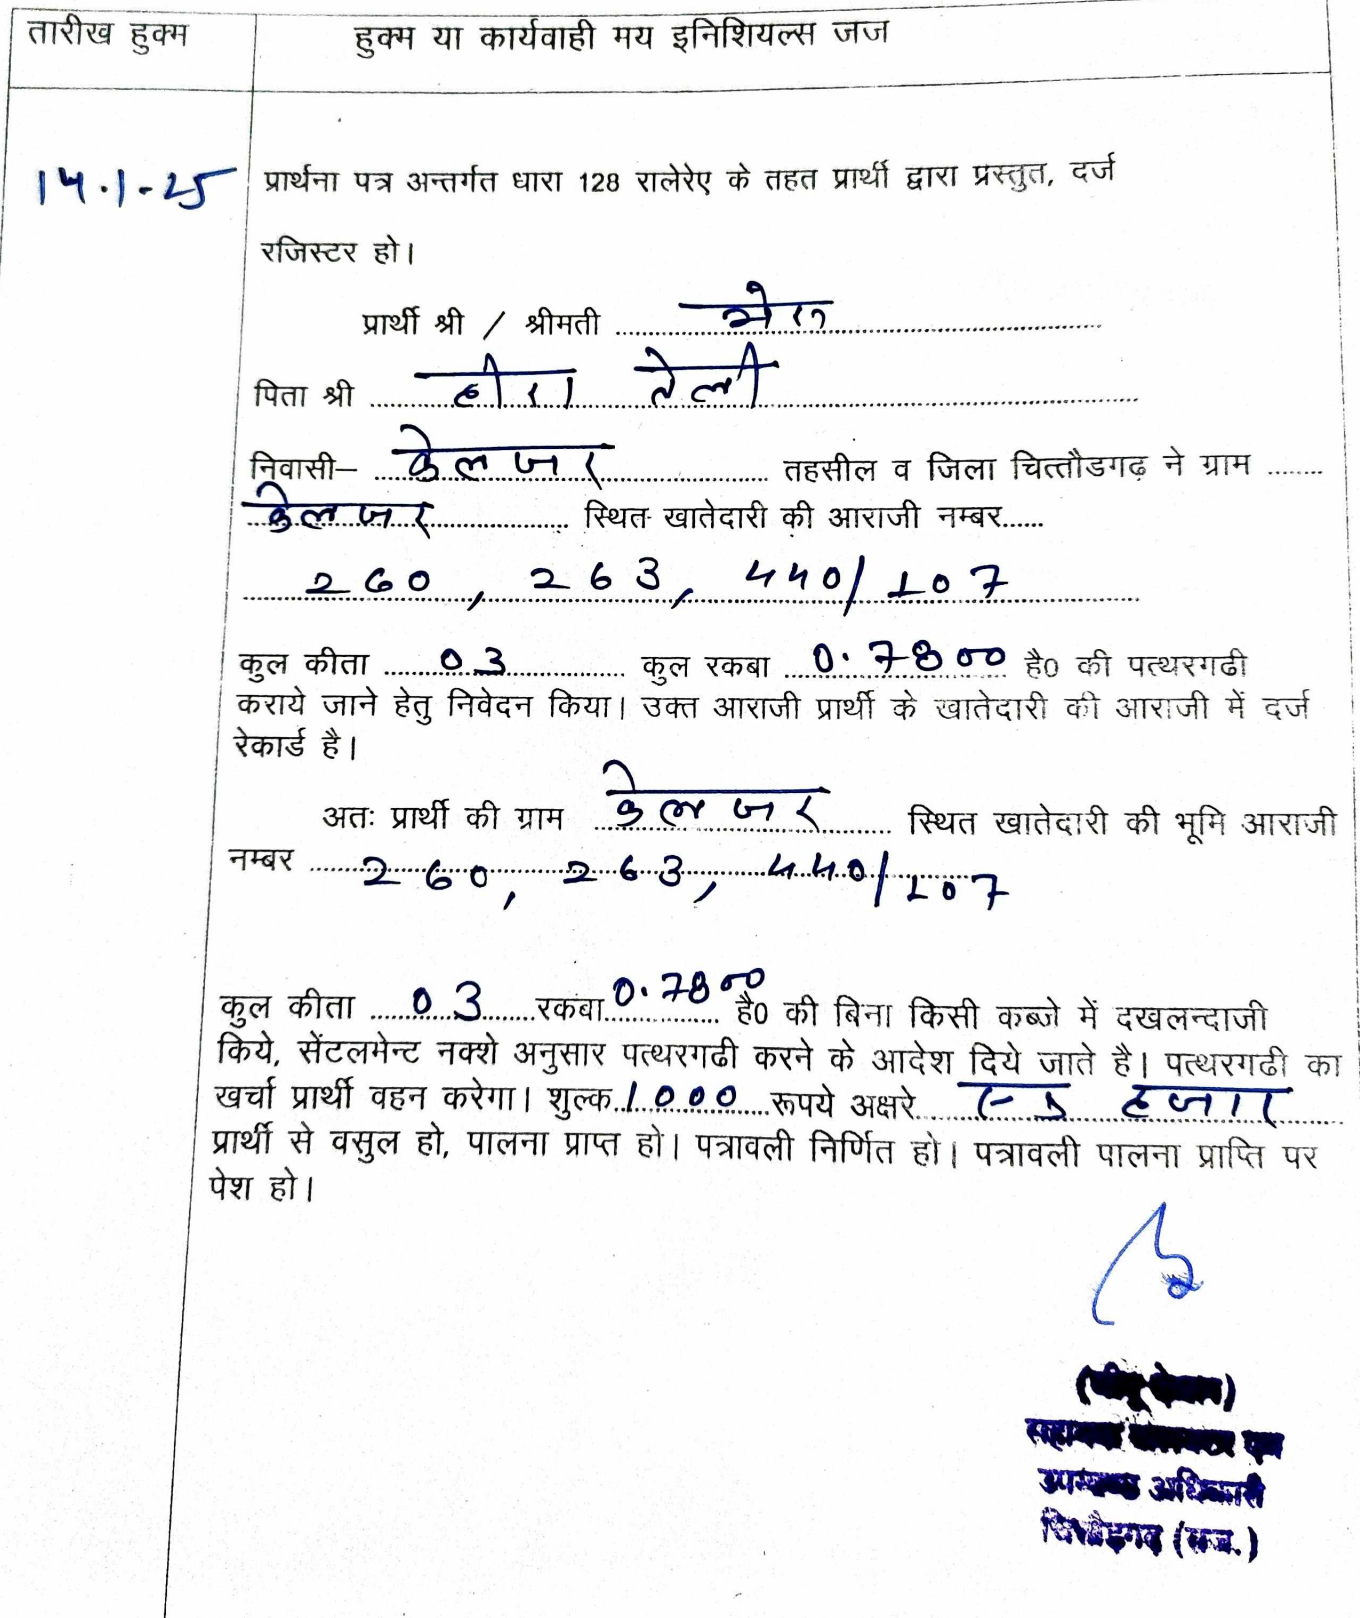 तारीख हुक्म
हुक्म या कार्यवाही मय इनिशियल्स जज
14.1-25
प्रार्थना पत्र अन्तर्गत धारा 128 रालेरेए के तहत प्रार्थी द्वारा प्रस्तुत, दर्ज
रजिस्टर हो।
प्रार्थी श्री / श्रीमती ..........
पिता श्री .......... हीरा तेली ..........
निवासी– .......... केलजर .......... तहसील व जिला चित्तौडगढ़ ने ग्राम ........
.......... केलजर .......... स्थित खातेदारी की आराजी नम्बर......
260, 263, 440/107
कुल कीता ..........03.......... कुल रकबा ..0.7800.. है0 की पत्थरगढी
कराये जाने हेतु निवेदन किया। उक्त आराजी प्रार्थी के खातेदारी की आराजी में दर्ज
रेकार्ड है।
अतः प्रार्थी की ग्राम .......... केलजर .......... स्थित खातेदारी की भूमि आराजी
नम्बर .......... 260, 263, 440/107
कुल कीता .......03.......रकबा..0.7800.. है0 की बिना किसी कब्जे में दखलन्दाजी
किये, सेंटलमेन्ट नक्शे अनुसार पत्थरगढी करने के आदेश दिये जाते है। पत्थरगढी का
खर्चा प्रार्थी वहन करेगा। शुल्क.1000.......रूपये अक्षरे....... एक हजार .......
प्रार्थी से वसुल हो, पालना प्राप्त हो। पत्रावली निर्णित हो। पत्रावली पालना प्राप्ति पर
पेश हो।
सहायक कलक्टर एवं
उपखण्ड अधिकारी
चित्तौड़गढ़ (राज.)